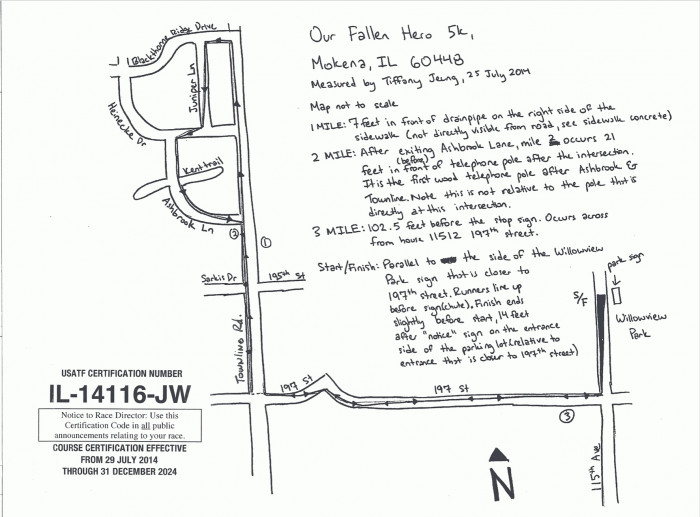 Our Fallen Hero 5k,
Mokena, IL 60448
Measured by Tiffany Jeung, 25 July 2014
Map not to scale
1 MILE: 7 feet in front of drainpipe on the right side of the
sidewalk (not directly visible from road, see sidewalk concrete)
2 MILE: After exiting Ashbrook Lane, mile 2 occurs 21
(before)
feet in front of telephone pole after the intersection.
It is the first wood telephone pole after Ashbrook &
Townline. Note this is not relative to the pole that is
directly at this intersection.
3 MILE: 102.5 feet before the stop sign. Occurs across
from house 11512 197th street.
Start/Finish: Parallel to the side of the Willowview
Park sign that is closer to
197th street. Runners line up
before sign (chute). Finish ends
slightly before start, 14 feet
after "notice" sign on the entrance
side of the parking lot (relative to
entrance that is closer to 197th street)
Blackthorne Ridge Drive
Juniper Ln
Heinecke Dr
Kent trail
Ashbrook Ln
2
1
Sarkis Dr
195th St
Townline Rd.
197 St
197 St
3
115th Ave
S/F
park sign
Willowview
Park
N
USATF CERTIFICATION NUMBER
IL-14116-JW
Notice to Race Director: Use this
Certification Code in all public
announcements relating to your race.
COURSE CERTIFICATION EFFECTIVE
FROM 29 JULY 2014
THROUGH 31 DECEMBER 2024